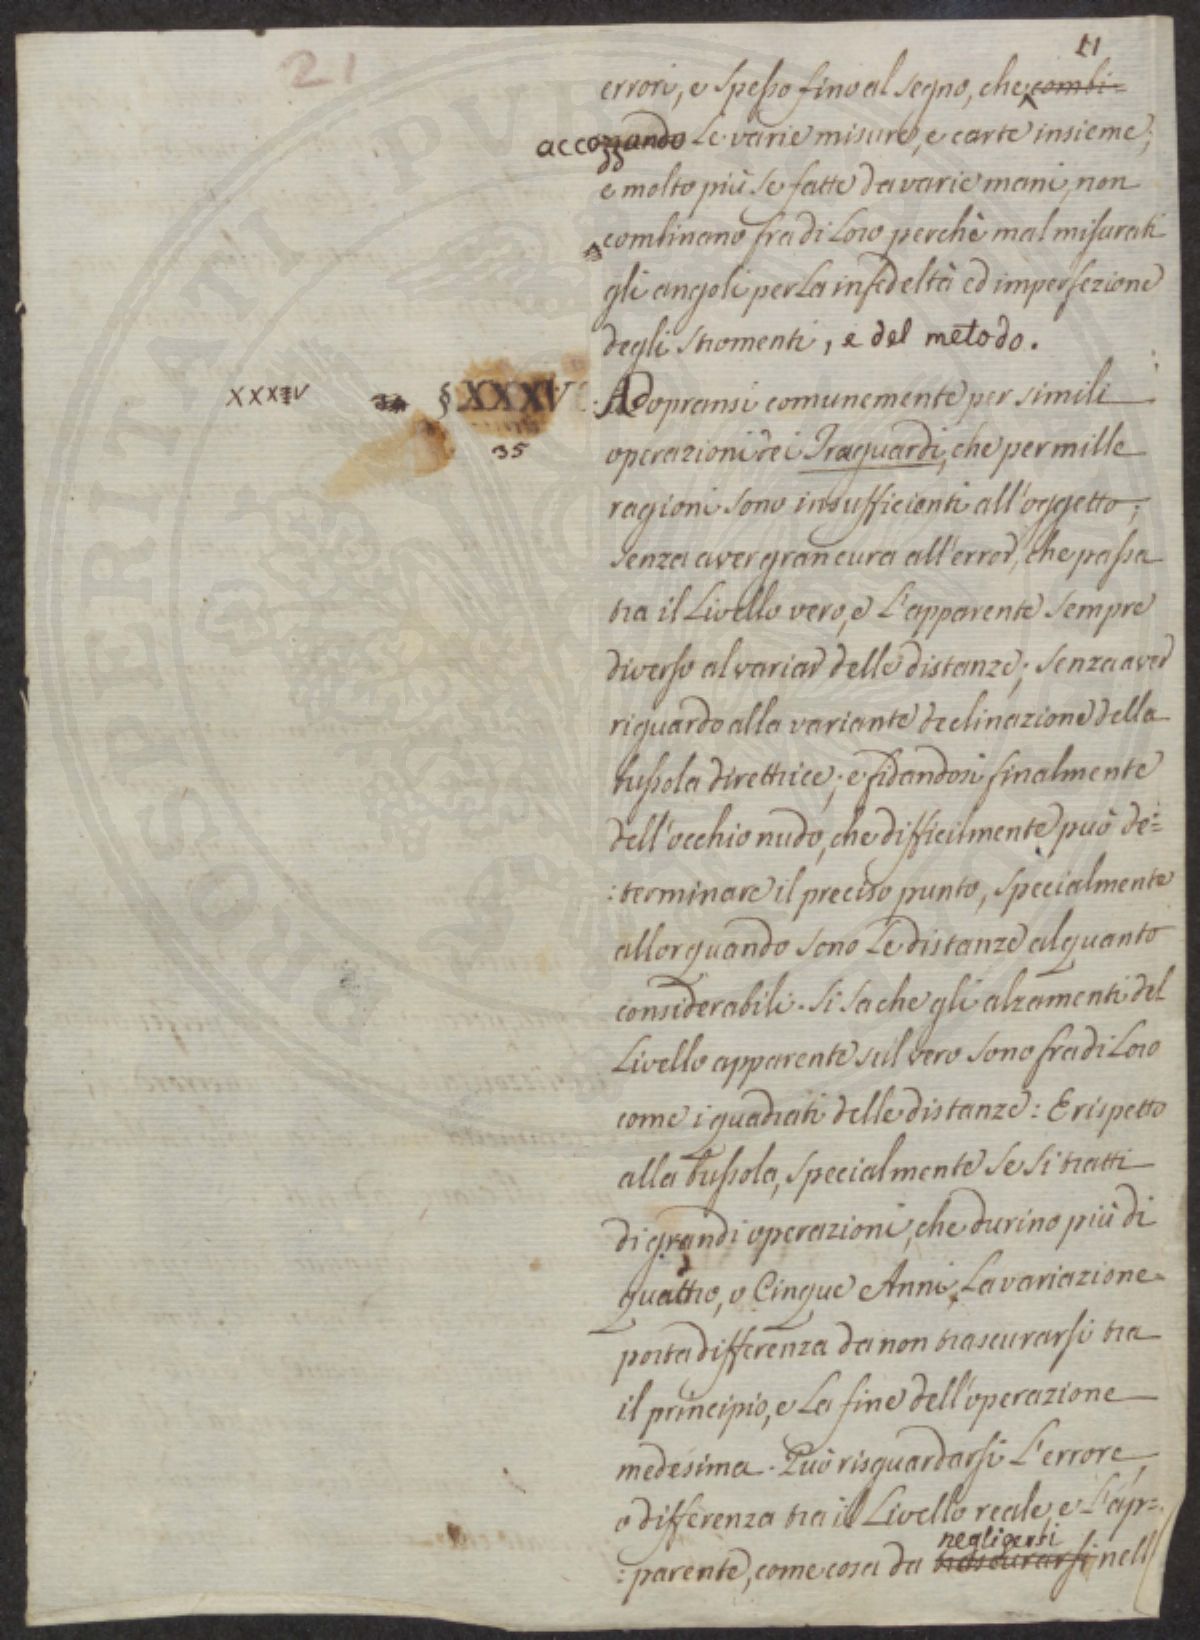 21
11
errori, e spesso fino al segno, che combi=
accozzando le varie misure, e carte insieme;
e molto più se fatte da varie mani, non
combinano fra di loro perchè mal misurati
gli angoli per la infedeltà ed imperfezione
degli stromenti, e del metodo.
XXXIV 34 § XXXV Adopransi comunemente per simili
35
operazioni dei Traguardi, che per mille
ragioni sono insufficienti all'oggetto;
senza aver gran cura all'error, che passa
tra il Livello vero, e l'apparente sempre
diverso al variar delle distanze; senza aver
riguardo alla variante declinazione della
bussola direttrice; e fidandosi finalmente
dell'occhio nudo, che difficilmente può de=
:terminare il preciso punto, specialmente
allorquando sono le distanze alquanto
considerabili. Si sa che gli alzamenti del
Livello apparente sul vero sono fra di loro
come i quadrati delle distanze: E rispetto
alla bussola, specialmente se si tratti
di grandi operazioni, che durino più di
quattro, o Cinque Anni, la variazione
porta differenza da non trascurarsi tra
il principio, e la fine dell'operazione
medesima. Può risguardarsi l'errore,
o differenza tra il Livello reale, e l'ap=
negligersi
:parente, come cosa da trascurarsi nell
PROSPERITATI PVBL